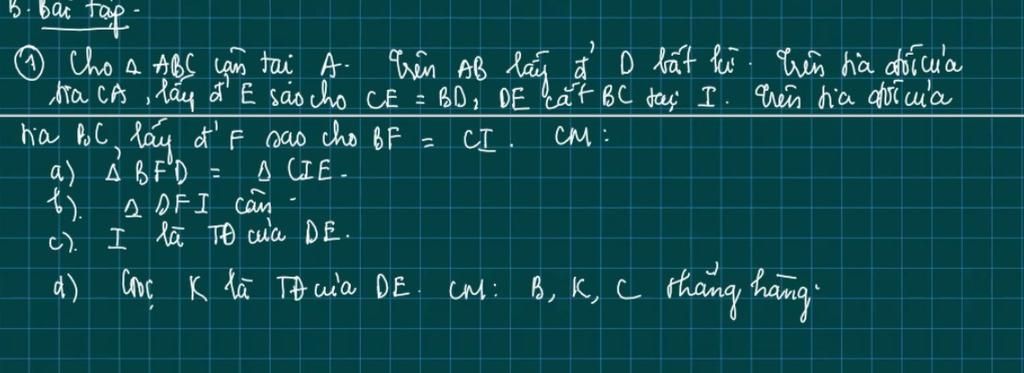 B. Bài tập -
① Cho Δ ABC cân tại A. Trên AB lấy đ' D bất kì. Trên tia đối của
tia CA, lấy đ' E sao cho CE = BD, DE cắt BC tại I. Trên tia đối của
tia BC, lấy đ' F sao cho BF = CI. CM:
a) Δ BFD = Δ CIE.
b). Δ DFI cân -
c). I là TĐ của DE.
d) Gọi K là TĐ của DE. CM: B, K, C thẳng hàng.